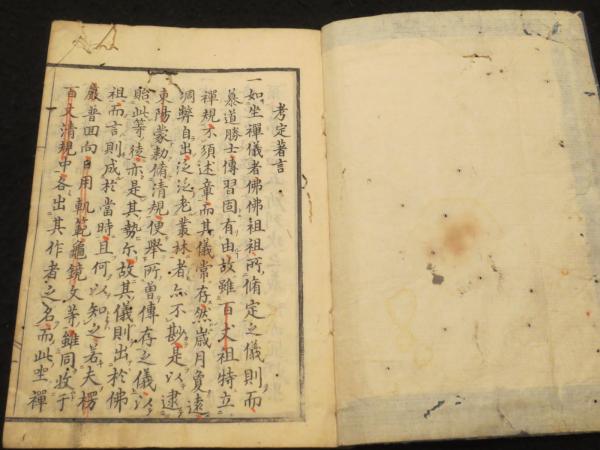 考定著言
一如坐禪儀者佛佛祖祖所脩定之儀則而
慕道勝士傳習固有由故雖百丈祖特立
禪規不須述章而其儀常存然歳月負遠
凋弊自出泛泛老叢林者亦不尠是以逮
東陽蒙勅脩清規便舉所曽傳存之儀以
貽此等徒亦是其勢尓故其儀則出於佛
祖而言則成於當時且何以知之若夫楞
嚴普回向日用軌範龜鏡文等雖同收于
百丈清規中各出其作者之名而此坐禪